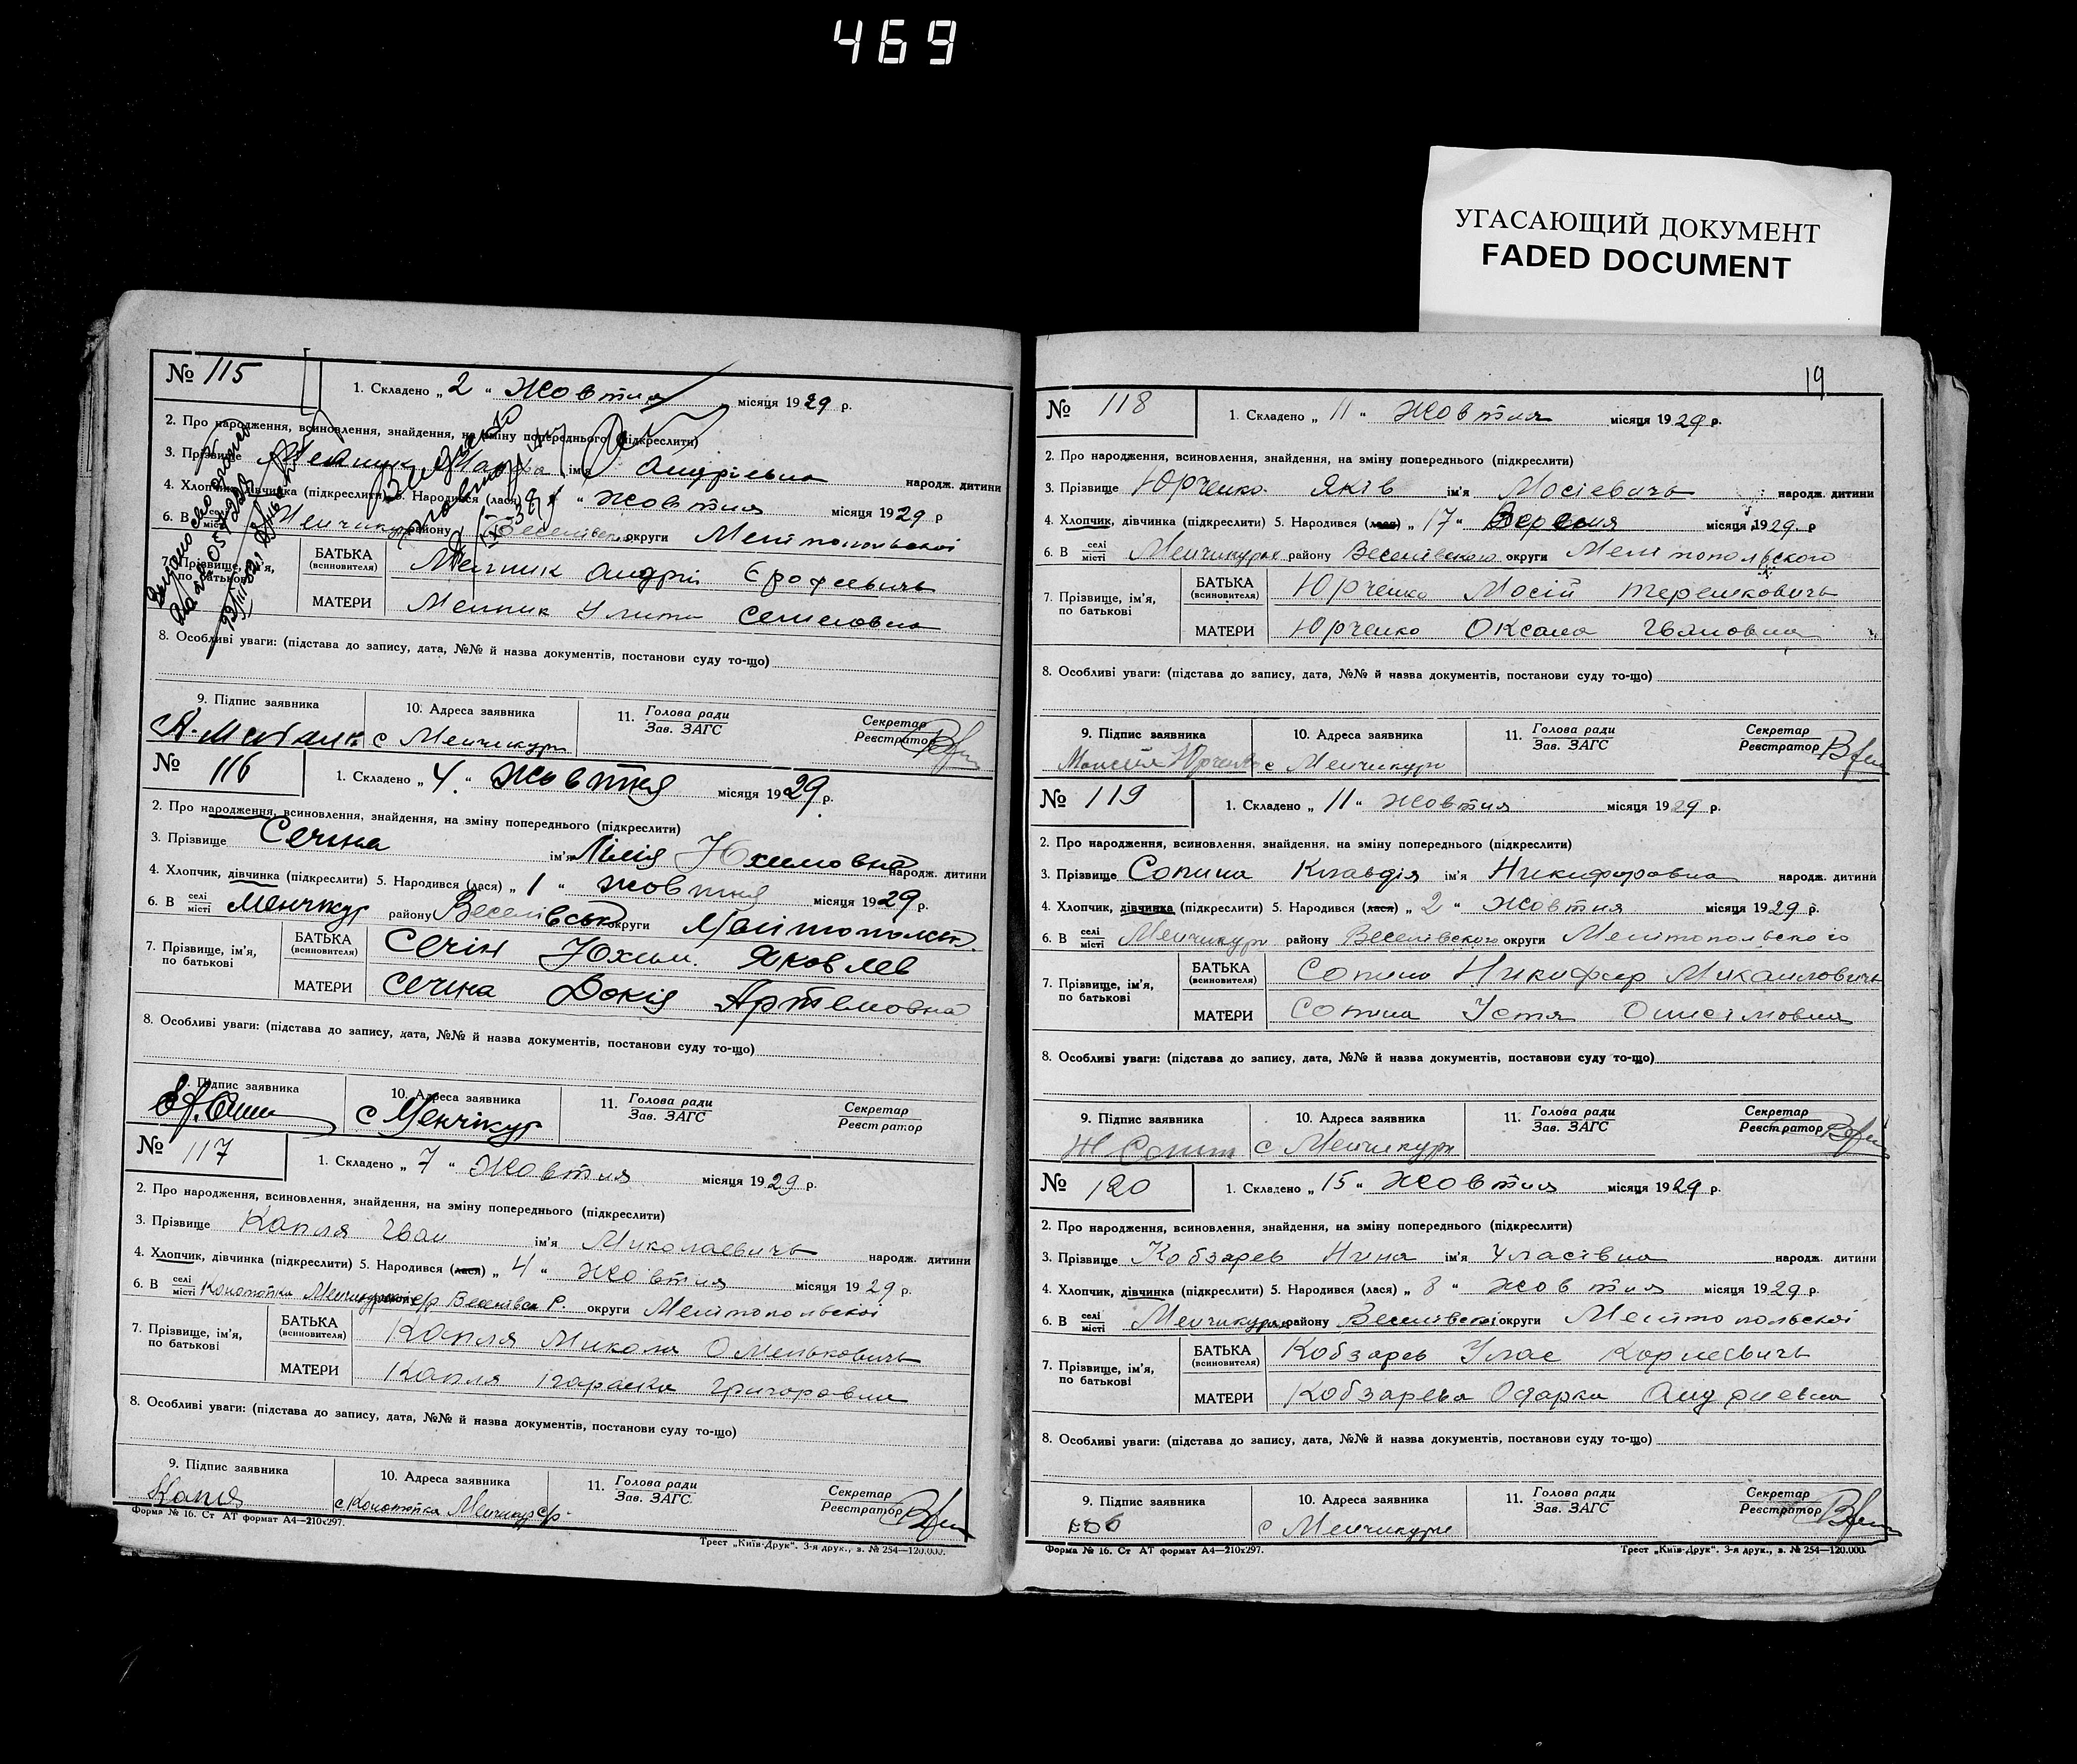 469
УГАСАЮЩИЙ ДОКУМЕНТ
FADED DOCUMENT
№ 115
1. Складено „ 2 “ Жовтня місяця 1929 р.
2. Про народження, всиновлення, знайдення, на зміну попереднього (підкреслити)
3. Прізвище ім'я Андріевна народж. дитини
4. Хлопчик, дівчинка (підкреслити) 5. Народився (лася) „ “ Жовтня місяця 1929 р
6. В селі місті Менчикур району округи Мелітопольської
7. Прізвище, ім'я, по батькові
БАТЬКА (всиновителя) Андрій Єрофеевичь
МАТЕРИ Улита Семеновна
8. Особливі уваги: (підстава до запису, дата, №№ й назва документів, постанови суду то-що)
9. Підпис заявника
10. Адреса заявника с Менчикури
11. Голова ради Зав. ЗАГС
Секретар Реєстратор
№ 116
1. Складено „ 4. “ Жовтня місяця 1929. р.
2. Про народження, всиновлення, знайдення, на зміну попереднього (підкреслити)
3. Прізвище Сечіна ім'я Лілія Юхимовна народж. дитини
4. Хлопчик, дівчинка (підкреслити) 5. Народився (лася) „ 1 “ жовтня місяця 1929 р.
6. В селі місті Менчікур району Веселівськ округи Мелітопольск.
7. Прізвище, ім'я, по батькові
БАТЬКА (всиновителя) Сечін Юхим. Яковлев
МАТЕРИ Сечіна Докія Артемовна
8. Особливі уваги: (підстава до запису, дата, №№ й назва документів, постанови суду то-що)
9. Підпис заявника
10. Адреса заявника с Менчікур
11. Голова ради Зав. ЗАГС
Секретар Реєстратор
№ 117
1. Складено „ 7 “ Жовтня місяця 1929 р.
2. Про народження, всиновлення, знайдення, на зміну попереднього (підкреслити)
3. Прізвище Капля Іван ім'я Миколаевичь народж. дитини
4. Хлопчик, дівчинка (підкреслити) 5. Народився (лася) „ 4 “ Жовтня місяця 1929 р.
6. В селі місті с/р Р. округи Мелітопольської
7. Прізвище, ім'я, по батькові
БАТЬКА (всиновителя) Капля Микола Омельковичь
МАТЕРИ Капля Параска Григоровна
8. Особливі уваги: (підстава до запису, дата, №№ й назва документів, постанови суду то-що)
9. Підпис заявника Капля
10. Адреса заявника с Менчикур с/р
11. Голова ради Зав. ЗАГС
Секретар Реєстратор
Форма № 16. Ст АТ формат А4—210х297.
Трест „Київ-Друк“. 3-я друк., з. № 254—120.000.
19
№ 118
1. Складено „ 11 “ Жовтня місяця 1929 р.
2. Про народження, всиновлення, знайдення, на зміну попереднього (підкреслити)
3. Прізвище Юрченко Яків ім'я Мосіевичь народж. дитини
4. Хлопчик, дівчинка (підкреслити) 5. Народився (лася) „ 17 “ Вересня місяця 1929 р
6. В селі місті Менчикурах району Веселівского округи Мелітопольского
7. Прізвище, ім'я, по батькові
БАТЬКА (всиновителя) Юрченко Мосій Терешковичь
МАТЕРИ Юрченко Оксана Івановна
8. Особливі уваги: (підстава до запису, дата, №№ й назва документів, постанови суду то-що)
9. Підпис заявника Юрченко
10. Адреса заявника с Менчикури
11. Голова ради Зав. ЗАГС
Секретар Реєстратор
№ 119
1. Складено „ 11 “ Жовтня місяця 1929 р.
2. Про народження, всиновлення, знайдення, на зміну попереднього (підкреслити)
3. Прізвище Сопина Клавдія ім'я Никифоровна народж. дитини
4. Хлопчик, дівчинка (підкреслити) 5. Народився (лася) „ 2 “ Жовтня місяця 1929 р.
6. В селі місті Менчикури району Веселівского округи Мелітопольского
7. Прізвище, ім'я, по батькові
БАТЬКА (всиновителя) Никифор Михаиловичь
МАТЕРИ Сопина Устя Онисімовна
8. Особливі уваги: (підстава до запису, дата, №№ й назва документів, постанови суду то-що)
9. Підпис заявника
10. Адреса заявника с Менчикури
11. Голова ради Зав. ЗАГС
Секретар Реєстратор
№ 120
1. Складено „ 15 “ Жовтня місяця 1929 р.
2. Про народження, всиновлення, знайдення, на зміну попереднього (підкреслити)
3. Прізвище Кобзарев Нина ім'я Уласівна народж. дитини
4. Хлопчик, дівчинка (підкреслити) 5. Народився (лася) „ 8 “ Жовтня місяця 1929 р.
6. В селі місті Менчикурах району Веселівскоі округи Мелітопольскоі
7. Прізвище, ім'я, по батькові
БАТЬКА (всиновителя) Кобзарев Улас Корнеевичь
МАТЕРИ Кобзарева Одарка Андриевна
8. Особливі уваги: (підстава до запису, дата, №№ й назва документів, постанови суду то-що)
9. Підпис заявника
10. Адреса заявника с Менчикури
11. Голова ради Зав. ЗАГС
Секретар Реєстратор
Форма № 16. Ст АТ формат А4—210х297.
Трест „Київ-Друк“. 3-я друк., з. № 254—120.000.